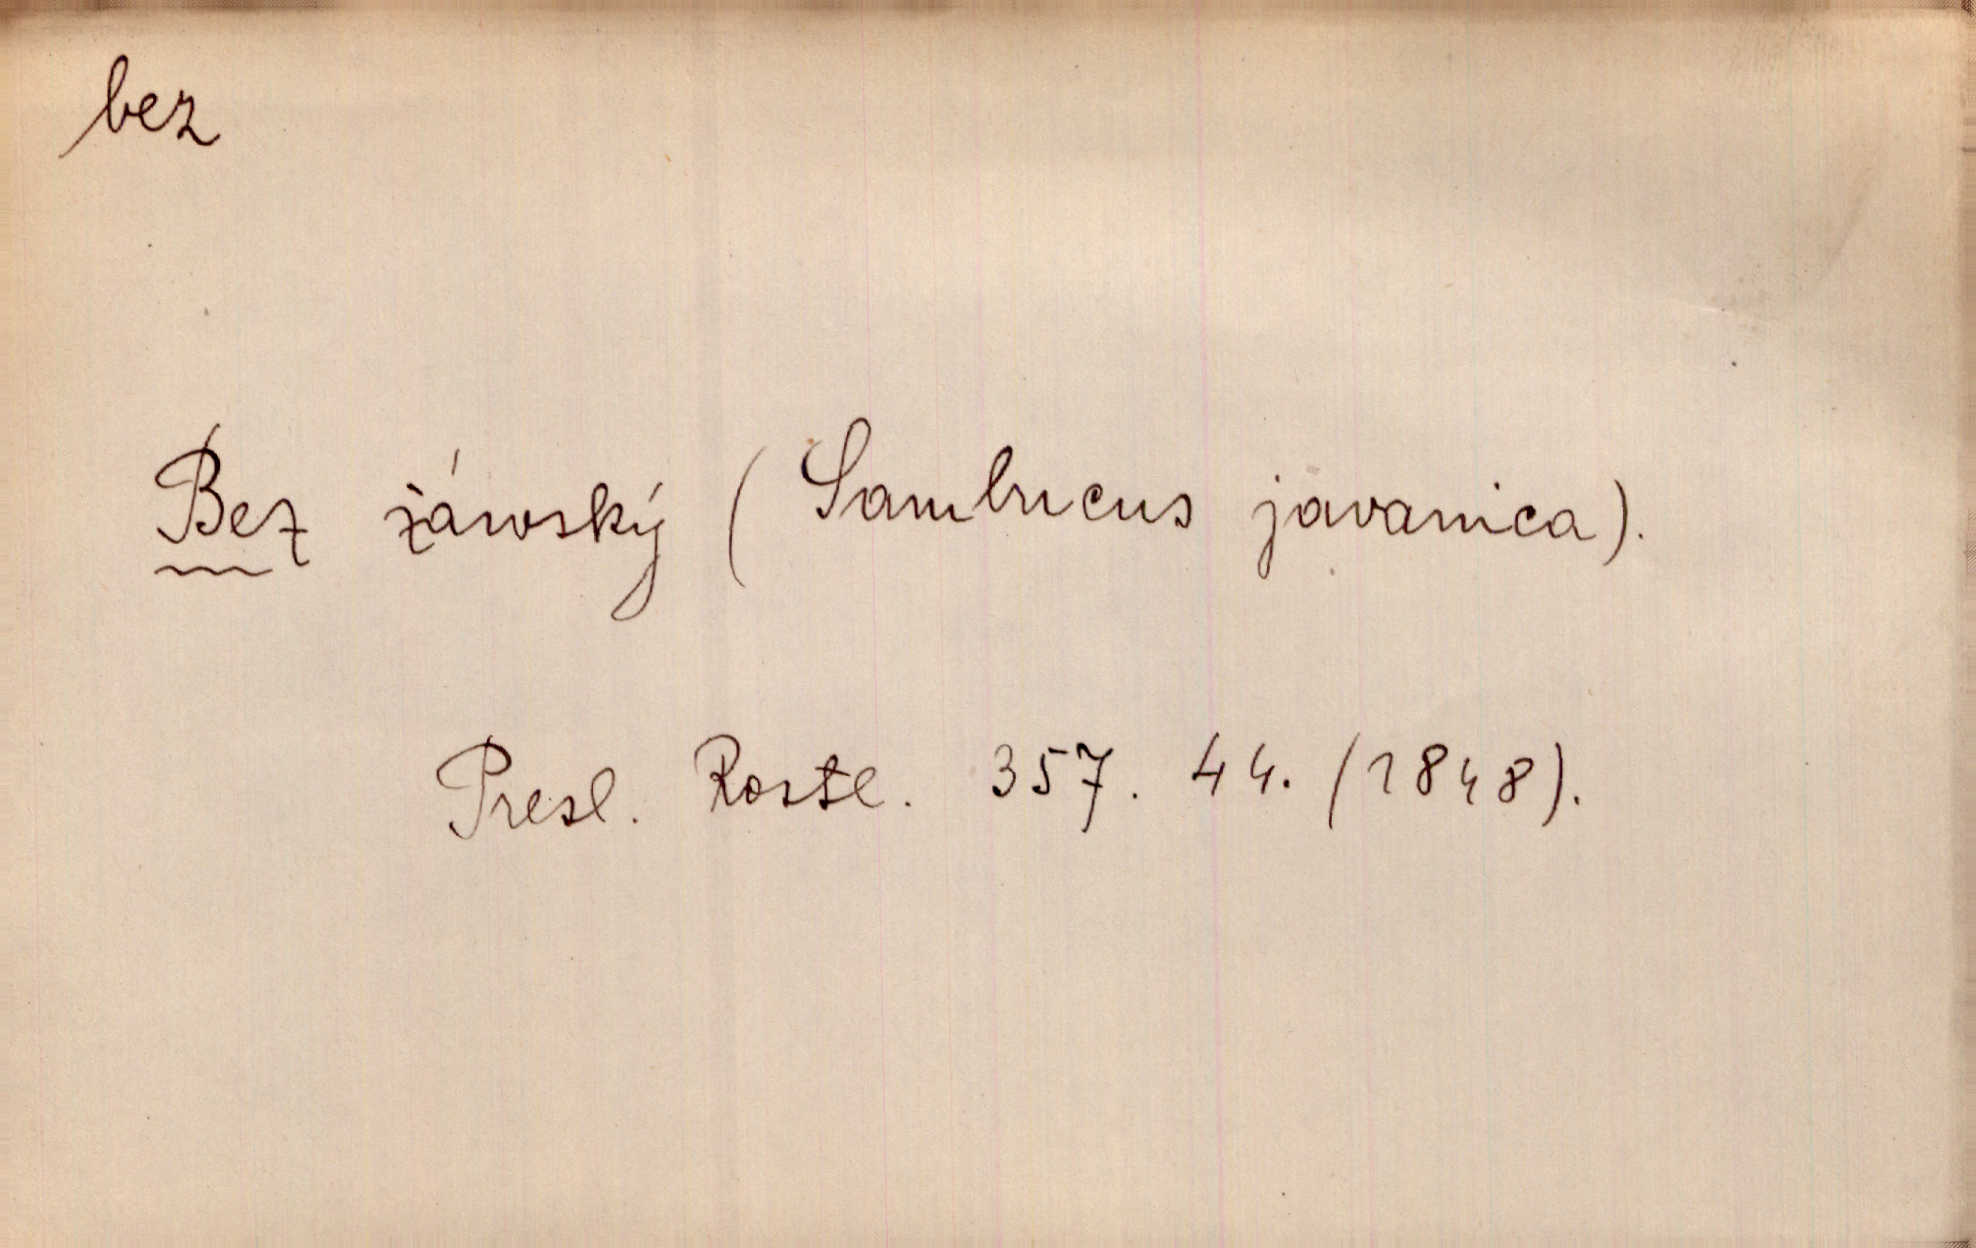 bez
Bez žáwský (Sambucus javanica).
Presl. Rostl. 357. 44. (1848).